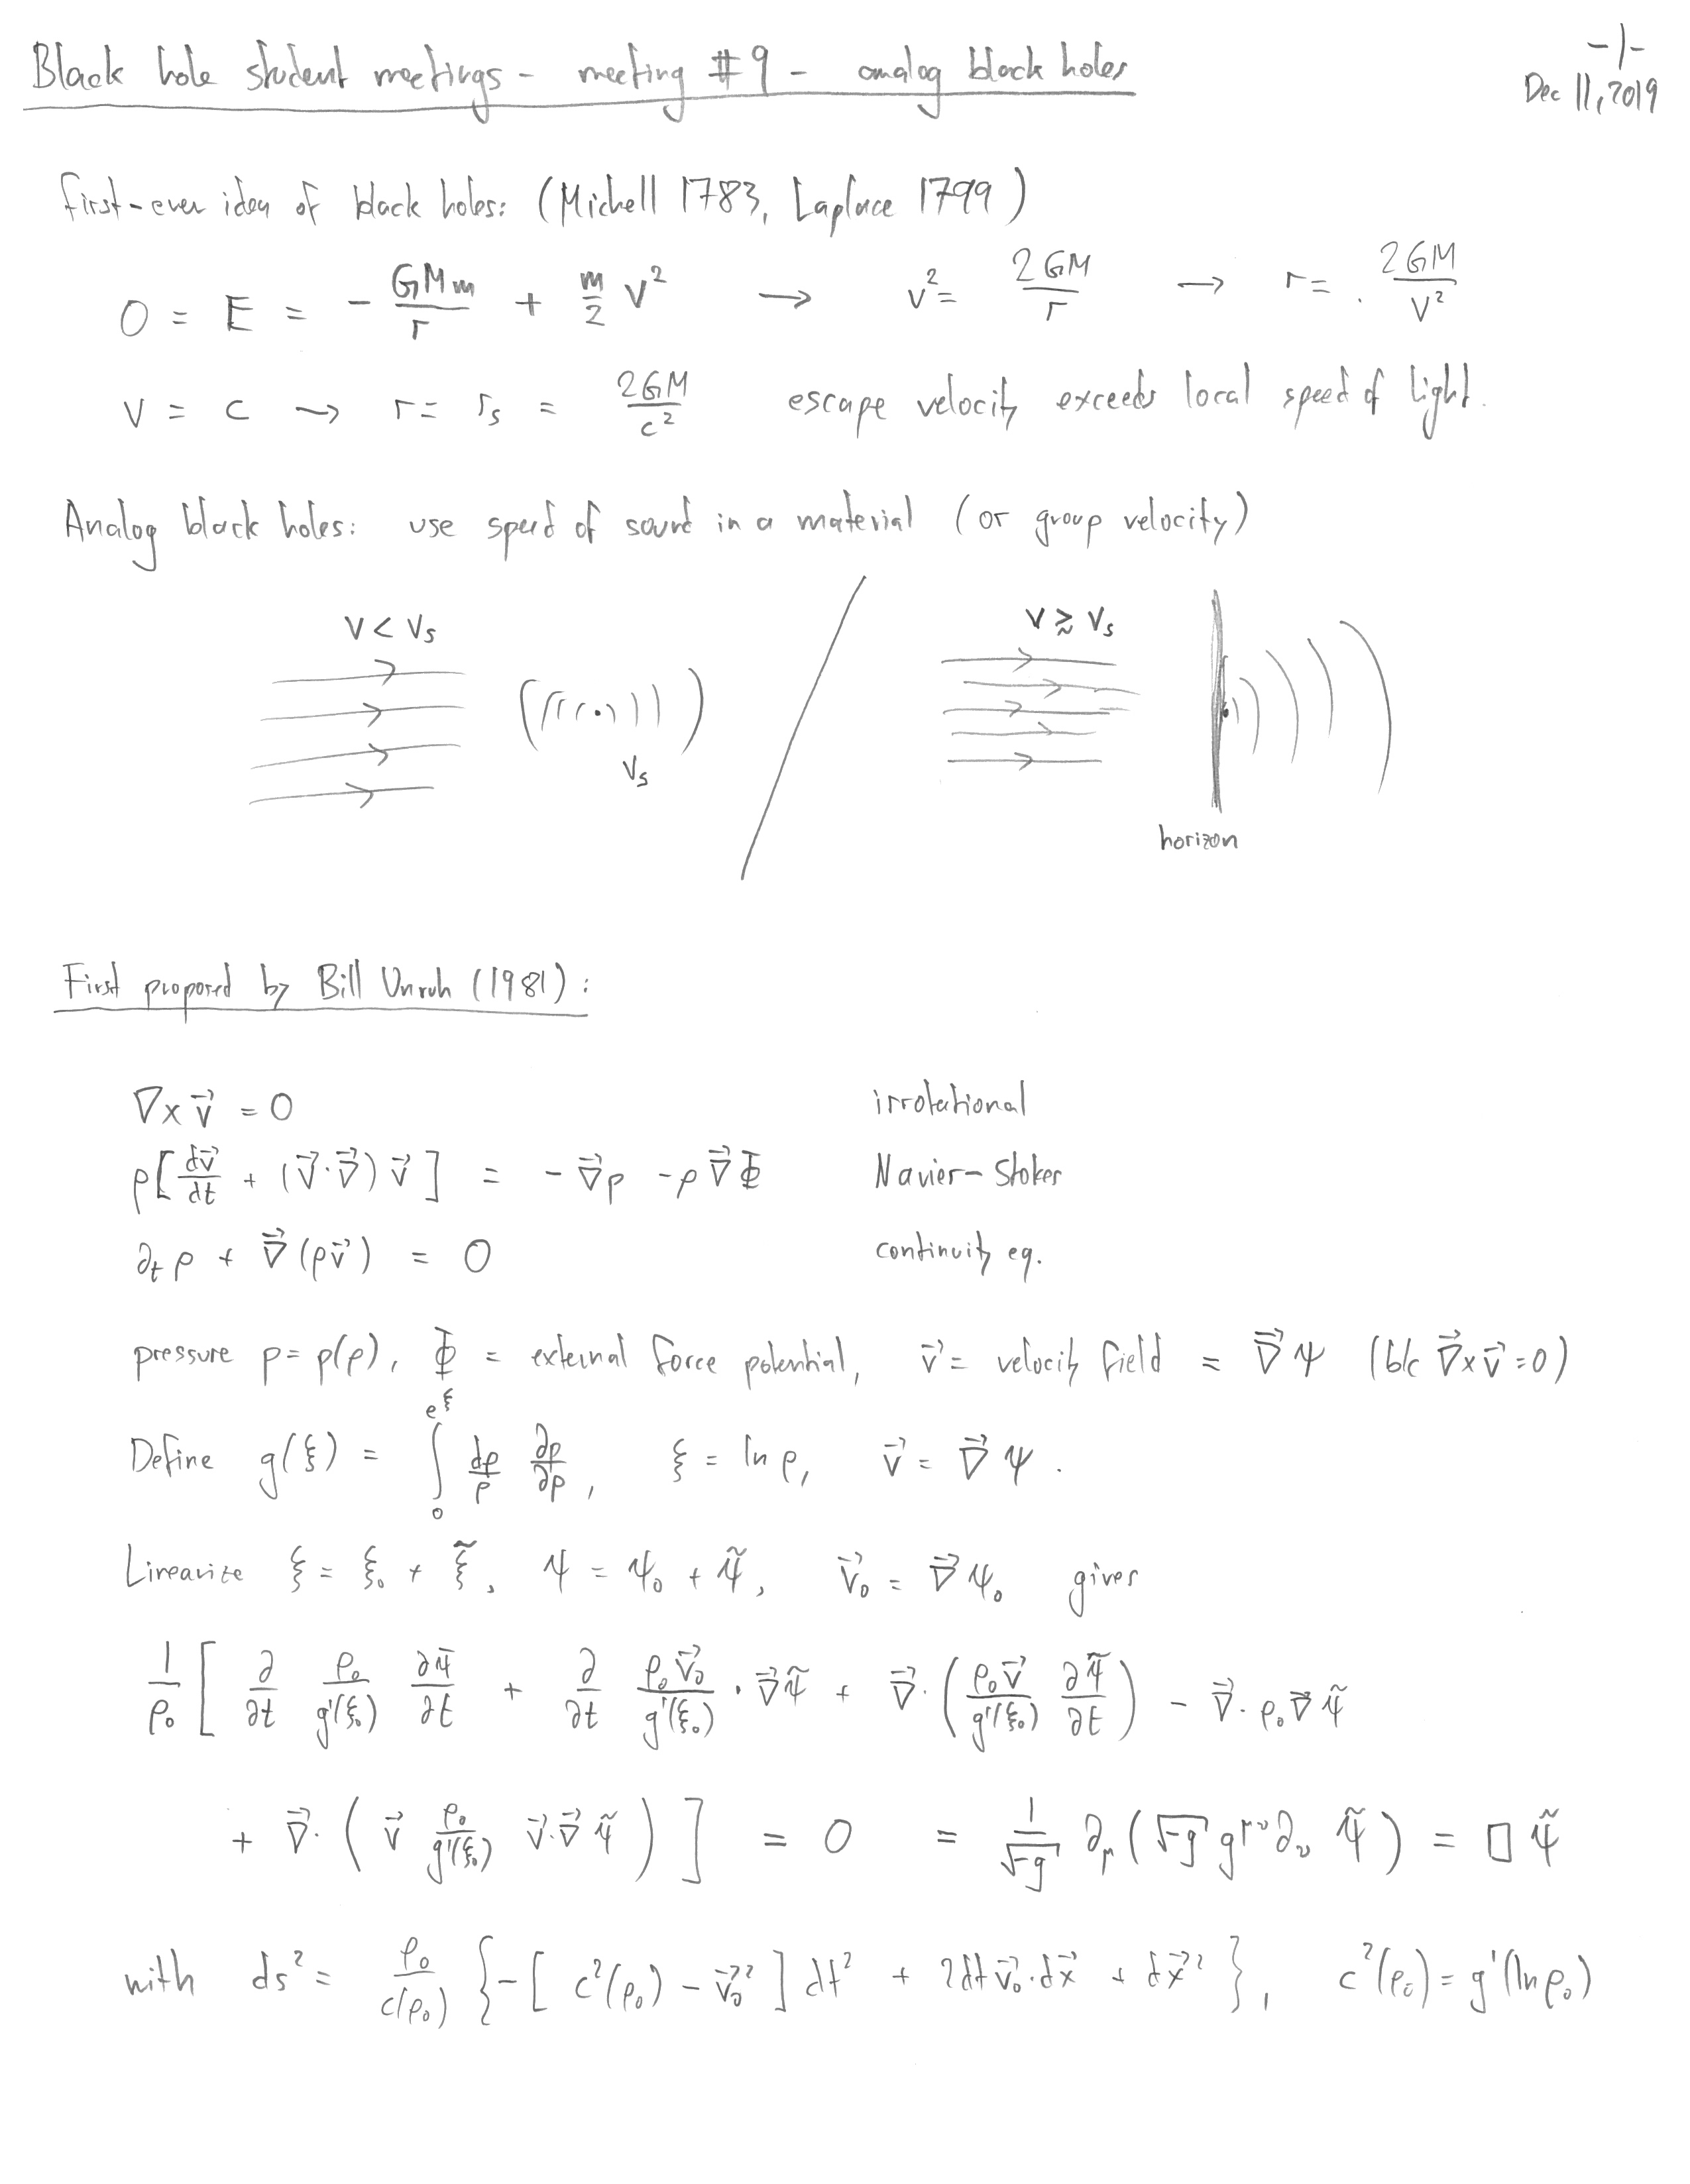 -1-
Black hole student meetings - meeting #9 - analog black holes
Dec 11, 2019
First-ever idea of black holes: (Michell 1783, Laplace 1799)
0 = E = - GMm/r + m/2 v² → v² = 2GM/r → r = 2GM/v²
v = c → r = r_s = 2GM/c² escape velocity exceeds local speed of light.
Analog black holes: use speed of sound in a material (or group velocity)
v < v_s
v ≳ v_s
v_s
horizon
First proposed by Bill Unruh (1981):
∇×v⃗ = 0 irrotational
ρ[dv⃗/dt + (v⃗·∇⃗)v⃗] = -∇⃗p - ρ∇⃗Φ Navier-Stokes
∂_t ρ + ∇⃗(ρv⃗) = 0 continuity eq.
pressure p = p(ρ), Φ = external force potential, v⃗ = velocity field = ∇⃗ψ (b/c ∇⃗×v⃗ = 0)
Define g(ξ) = ∫_0^{e^ξ} dρ/ρ ∂p/∂ρ, ξ = ln ρ, v⃗ = ∇⃗ψ.
Linearize ξ = ξ₀ + ξ̃, ψ = ψ₀ + ψ̃, v⃗₀ = ∇⃗ψ₀ gives
1/ρ₀ [ ∂/∂t ρ₀/g'(ξ₀) ∂ψ̃/∂t + ∂/∂t ρ₀v⃗₀/g'(ξ₀) · ∇⃗ψ̃ + ∇⃗·(ρ₀v⃗/g'(ξ₀) ∂ψ̃/∂t) - ∇⃗·ρ₀∇⃗ψ̃
+ ∇⃗·(v⃗ ρ₀/g'(ξ₀) v⃗·∇⃗ψ̃) ] = 0 = 1/√-g ∂_μ(√-g g^{μν}∂_ν ψ̃) = □ψ̃
with ds² = ρ₀/c(ρ₀) {-[c²(ρ₀) - v⃗₀²]dt² + 2dt v⃗₀·dx⃗ + dx⃗²}, c²(ρ₀) = g'(ln ρ₀)